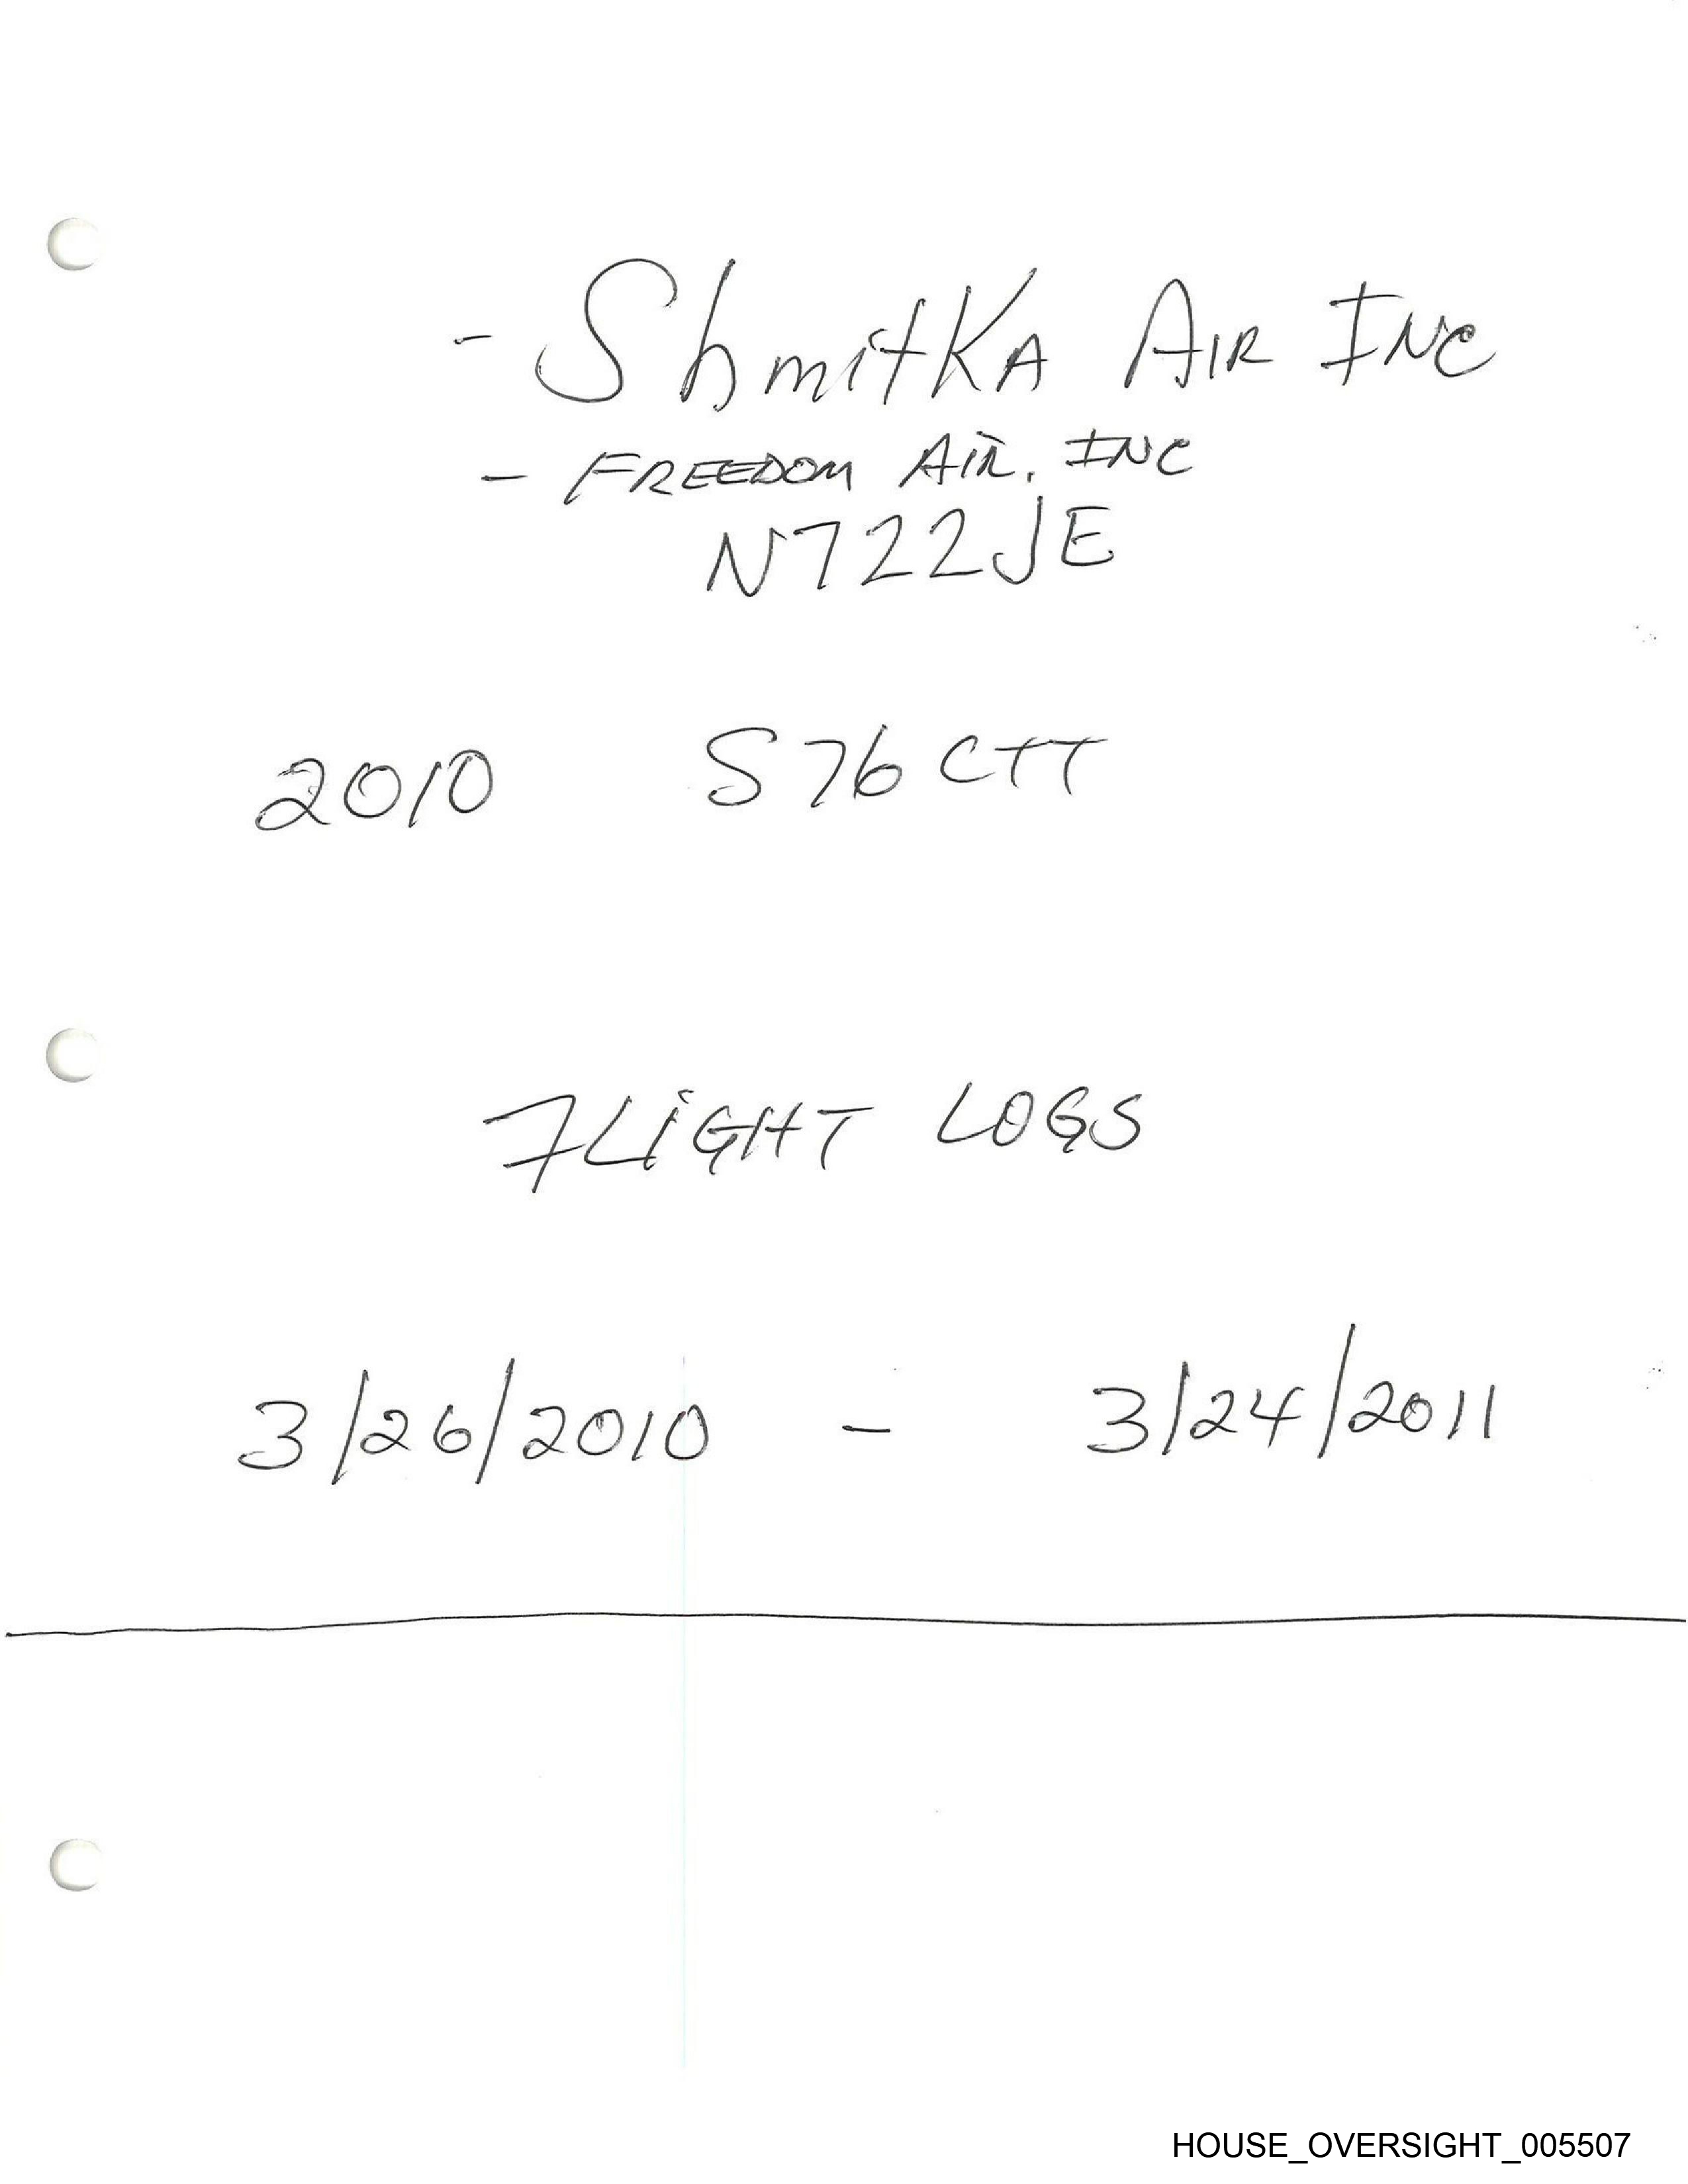 - ShmitKA AIR INC
- FREEDOM AIR. INC
N722JE
2010 S76 C++
FLIGHT LOGS
3/26/2010 - 3/24/2011
HOUSE_OVERSIGHT_005507